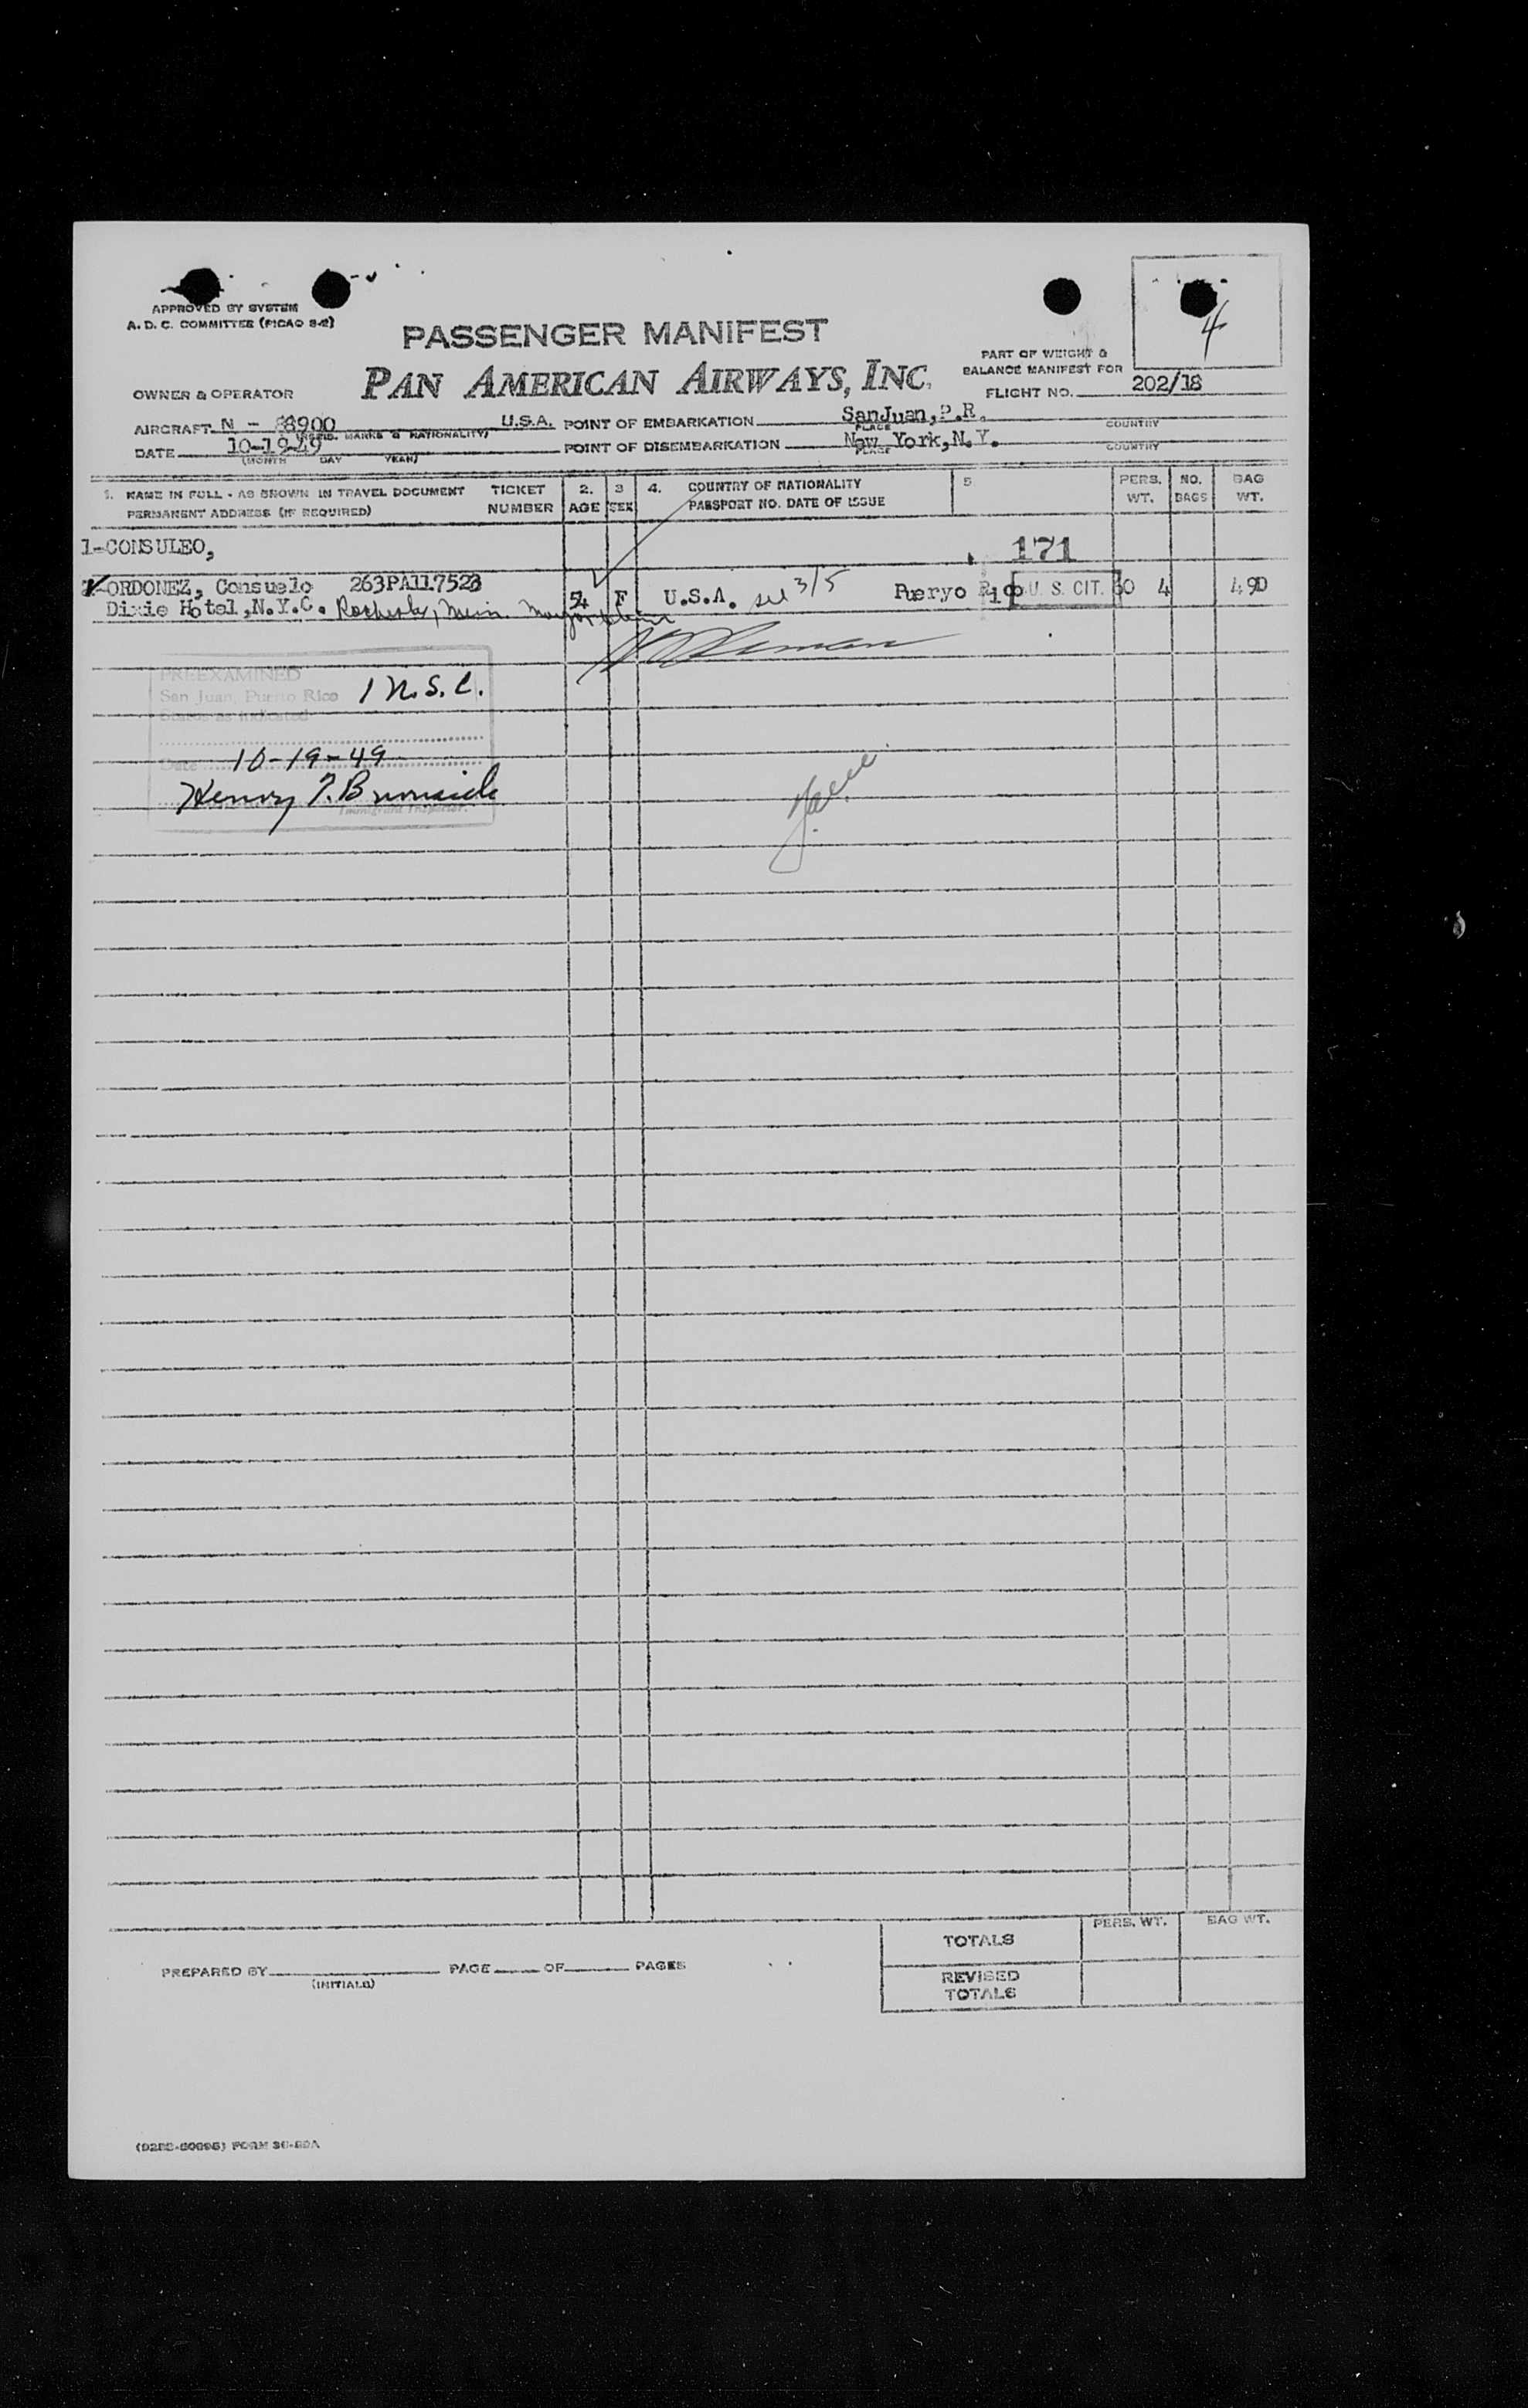 4
APPROVED BY SYSTEM
A. D. C. COMMITTEE (PICAO 8-2)
PASSENGER MANIFEST
PART OF WEIGHT &
BALANCE MANIFEST FOR
OWNER & OPERATOR PAN AMERICAN AIRWAYS, INC. FLIGHT NO. 202/18
AIRCRAFT N - 88900 U.S.A. POINT OF EMBARKATION SanJuan, P.R.
MARKS & NATIONALITY) PLACE COUNTRY
DATE 10-19-49 POINT OF DISEMBARKATION New York, N.Y.
(MONTH DAY YEAR) PLACE COUNTRY
1. NAME IN FULL - AS SHOWN IN TRAVEL DOCUMENT TICKET 2. 3 4. COUNTRY OF NATIONALITY 5 PERS. NO. BAG
PERMANENT ADDRESS (IF REQUIRED) NUMBER AGE SEX PASSPORT NO. DATE OF ISSUE WT. BAGS WT.
1-CONSULEO, 171
ORDONEZ, Consuelo 263PA117523 54 F U.S.A. see 3/5 Pueryo Rico U. S. CIT. 4
Dixie Hotel, N.Y.C. Rochester, Minn.
PREEXAMINED
San Juan, Puerto Rico 1 U.S.C.
Status as indicated
Date 10-19-49
Henry T. Burnside
Immigrant Inspector.
TOTALS PERS. WT. BAG WT.
PREPARED BY PAGE OF PAGES
(INITIALS)
REVISED
TOTALS
FORM